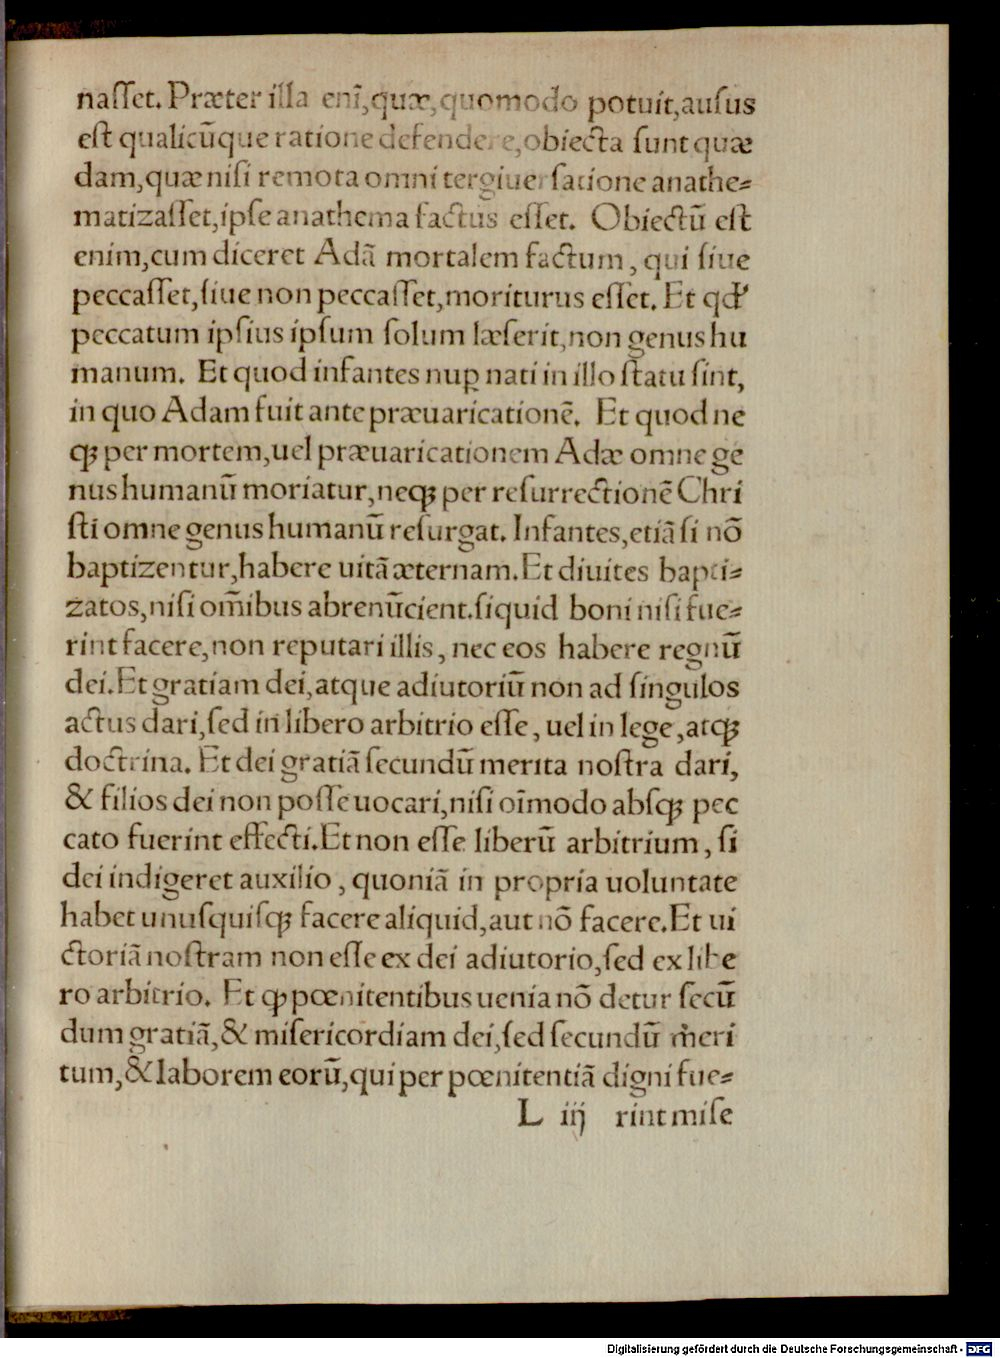 naſſet. Præter illa enĩ, quæ, quomodo potuit, auſus
eſt qualicũque ratione defendere, obiecta ſunt quæ
dam, quæ niſi remota omni tergiuerſatione anathe⸗
matizaſſet, ipſe anathema factus eſſet. Obiectũ eſt
enim, cum diceret Adã mortalem factum, qui ſiue
peccaſſet, ſiue non peccaſſet, moriturus eſſet. Et qđ
peccatum ipſius ipſum ſolum læſerit, non genus hu
manum. Et quod infantes nuꝑ nati in illo ſtatu ſint,
in quo Adam fuit ante præuaricationẽ. Et quod ne
qꝫ per mortem, uel præuaricationem Adæ omne ge
nus humanũ moriatur, neqꝫ per reſurrectionẽ Chri
ſti omne genus humanũ reſurgat. Infantes, etiã ſi nõ
baptizentur, habere uitã æternam. Et diuites bapti⸗
zatos, niſi om̃ibus abrenũcient. ſiquid boni niſi fue⸗
rint facere, non reputari illis, nec eos habere regnũ
dei. Et gratiam dei, atque adiutoriũ non ad ſingulos
actus dari, ſed in libero arbitrio eſſe, uel in lege, atqꝫ
doctrina. Et dei gratiã ſecundũ merita noſtra dari,
& filios dei non poſſe uocari, niſi oĩmodo abſqꝫ pec
cato fuerint effecti. Et non eſſe liberũ arbitrium, ſi
dei indigeret auxilio, quoniã in propria uoluntate
habet unuſquiſqꝫ facere aliquid, aut nõ facere. Et ui
ctoriã noſtram non eſſe ex dei adiutorio, ſed ex libe
ro arbitrio. Et ꝙ pœnitentibus uenia nõ detur ſecũ
dum gratiã, & miſericordiam dei, ſed ſecundũ meri
tum, & laborem eorũ, qui per pœnitentiã digni fue⸗
L iij rint miſe
Digitalisierung gefördert durch die Deutsche Forschungsgemeinschaft - DFG